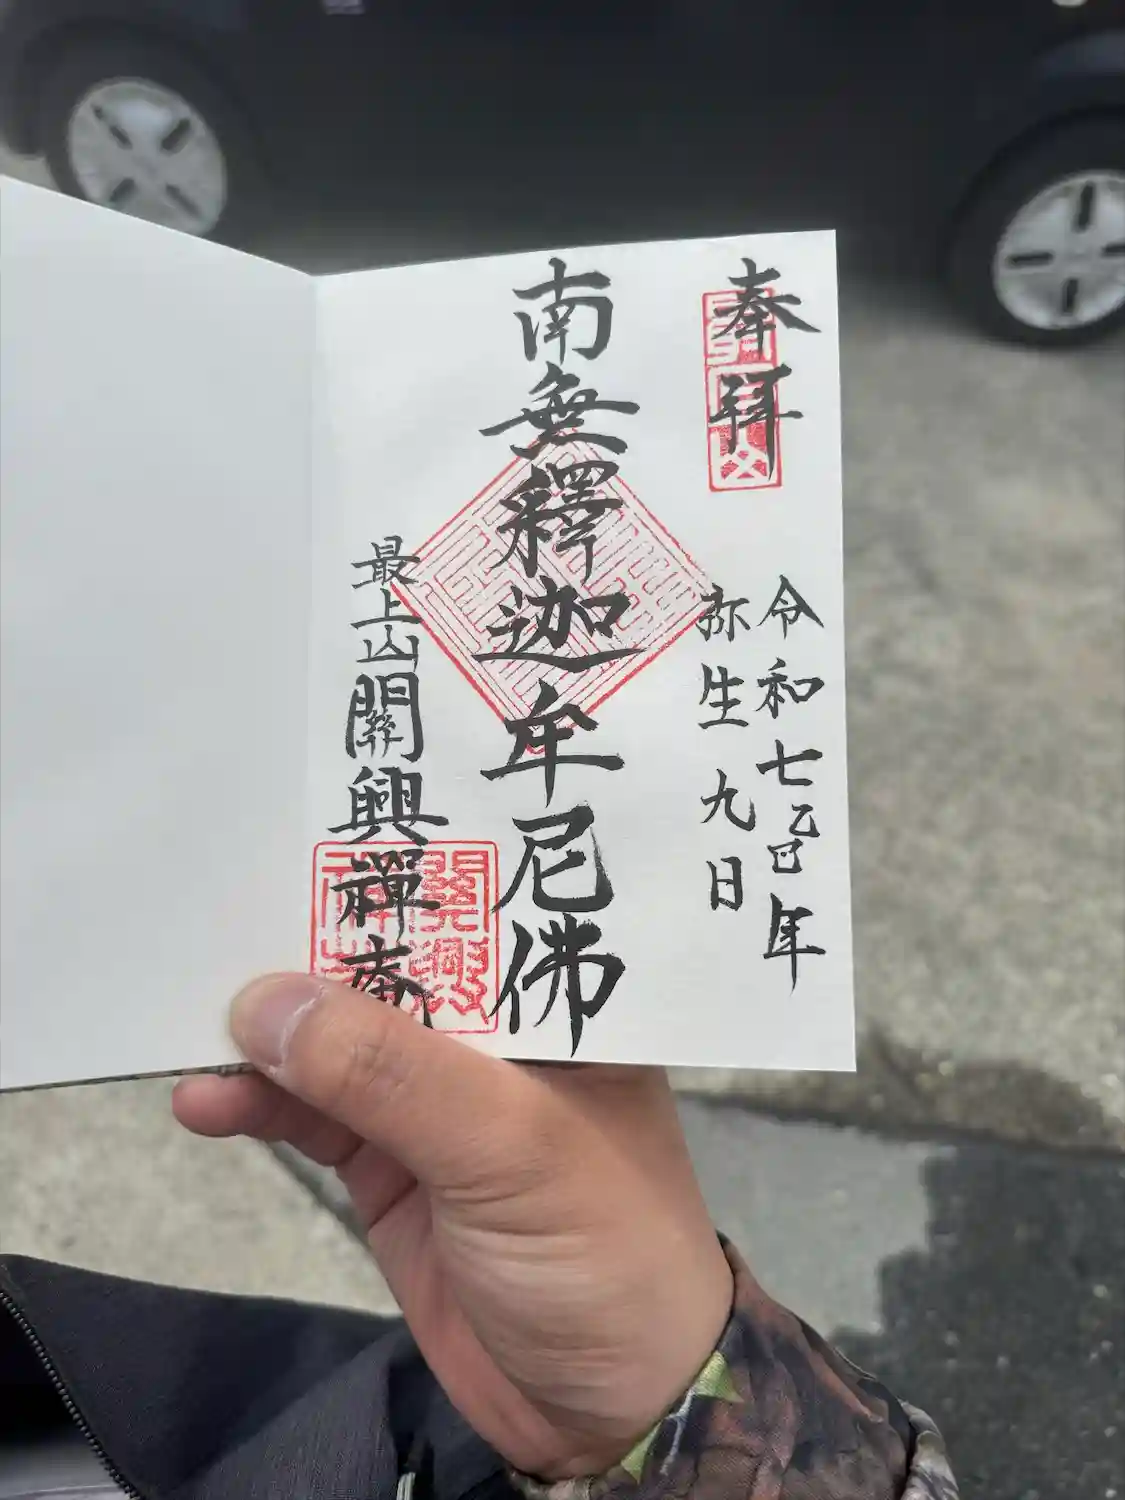 奉拝
令和七乙巳年
弥生九日
南無釋迦牟尼佛
最上山關興禪庵